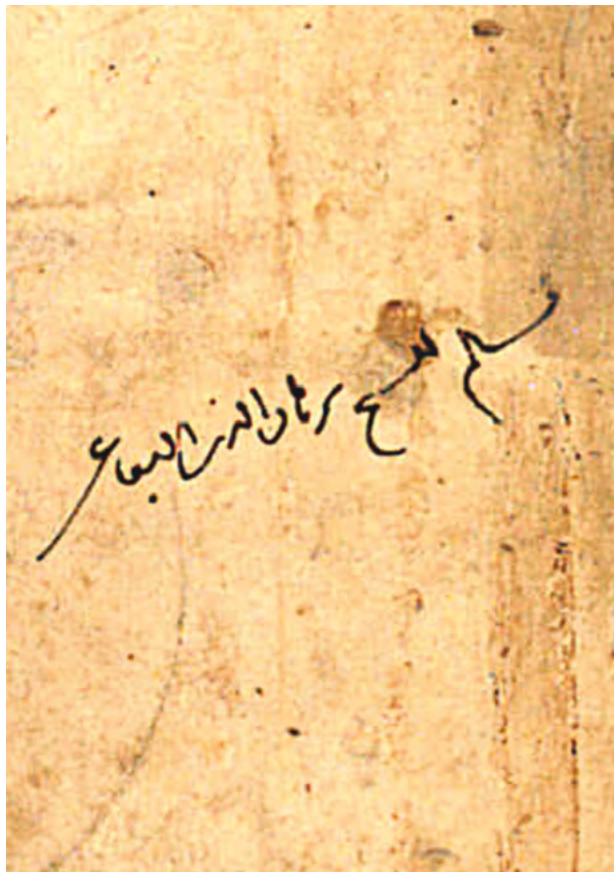 يسلم للشيخ برهان الدين البقاعي